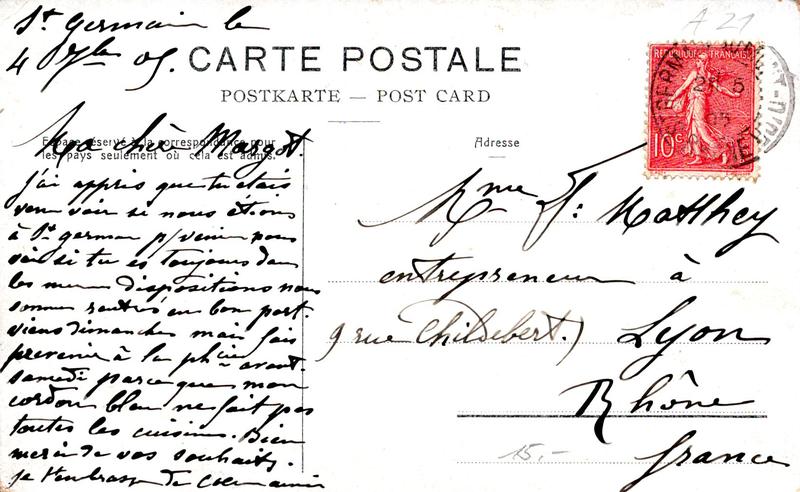 St Germain le
4 7bre 05.
CARTE POSTALE
POSTKARTE — POST CARD
Espace réservé à la correspondance pour
les pays seulement où cela est admis.
Adresse
A 21
REPUBLIQUE FRANÇAISE
10c
Ma chère Margot.
j'ai appris que tu étais
venu voir si nous étions
à St germain p/ venir nous
voir si tu es toujours dans
les mêmes dispositions nous
sommes rentrés en bon port.
viens dimanche mais fais
prevenir à la phcie avant
samedi parce que mon
cordon bleu ne fait pas
toutes les cuisines. Bien
merci de vos souhaits.
je t'embrasse
Mme J: Matthey
entrepreneur à
9 rue Childebert.) Lyon
Rhône
france
15.-